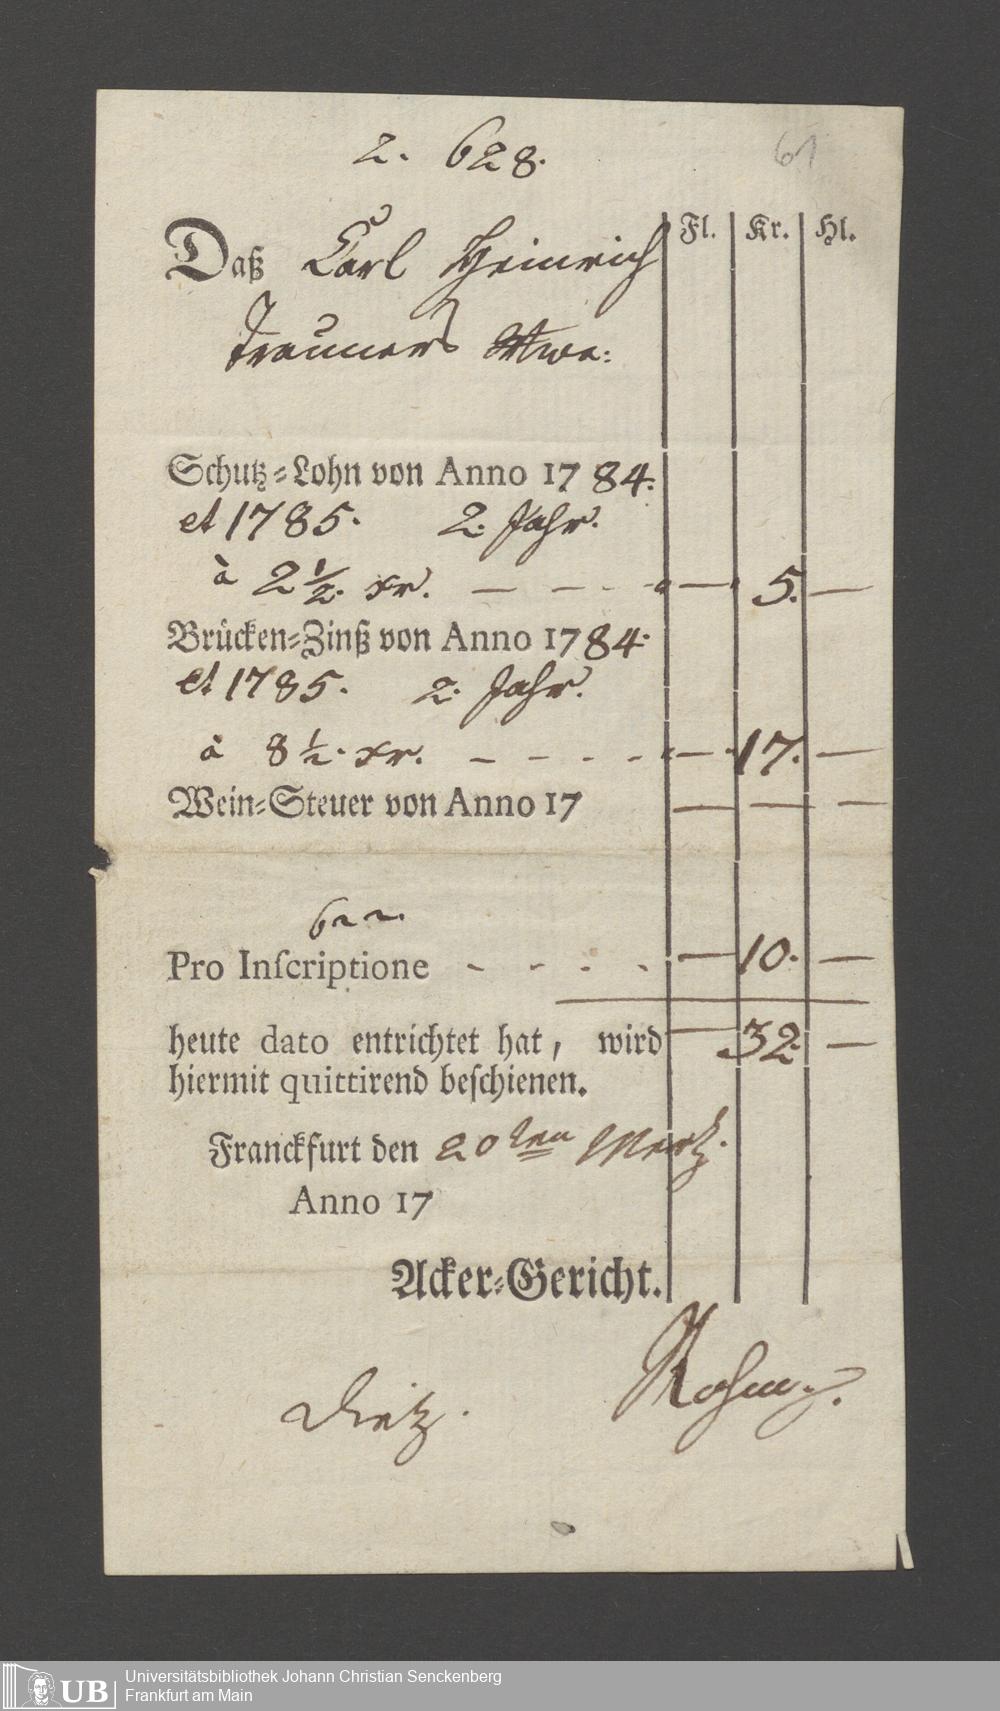 2. 628. 61
Fl. Kr. Hl.
Daß Carl Heinrich
Trauners Wwe:
Schutz-Lohn von Anno 1784.
et 1785. 2. Jahr.
à 2 1/2. xr. — — — — 5. —
Brücken-Zinß von Anno 1784.
et 1785. 2. Jahr.
à 8 1/2. xr. - - - - — 17. —
Wein-Steuer von Anno 17 — — —
Pro Inſcriptione - - - - — 10. —
heute dato entrichtet hat, wird — 32. —
hiermit quittirend beſchienen.
Franckfurt den 20ten Mertz.
Anno 17
Acker-Gericht.
Dietz.
UB Universitätsbibliothek Johann Christian Senckenberg
Frankfurt am Main